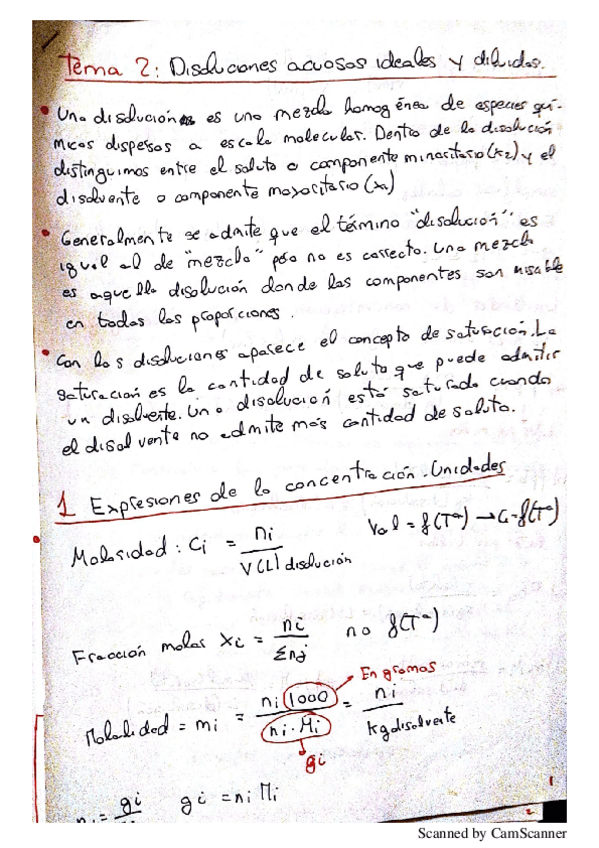 Tema 2: Disoluciones acuosas ideales y diluidas.
• Una disolución es una mezcla homogénea de especies quí-
micas dispersas a escala molecular. Dentro de la disolución
distinguimos entre el soluto o componente minoritario (x2) y el
disolvente o componente mayoritario (x1)
• Generalmente se admite que el término "disolución" es
igual al de "mezcla" pero no es correcto. Una mezcla
es aquella disolución donde los componentes son miscible
en todas las proporciones.
• Con las disoluciones aparece el concepto de saturación. La
saturación es la cantidad de soluto que puede admitir
un disolvente. Una disolución está saturada cuando
el disolvente no admite más cantidad de soluto.
1 Expresiones de la concentración. Unidades
Molaridad: Ci = ni / V(L) disolución Vol = f(Tª) → C = f(Tª)
Fracción molar Xi = ni / Σnj no f(Tª)
En gramos
Molalidad = mi = ni 1000 / ni · Mi = ni / kg disolvente
gi
gi gi = ni Mi
1
2
Scanned by CamScanner